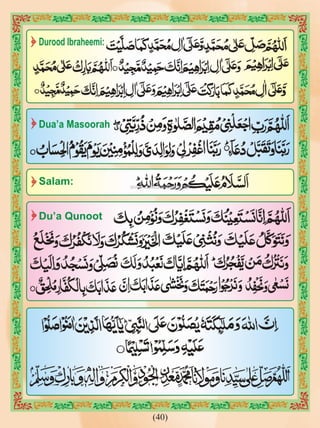 Durood Ibraheemi: اَللّٰهُمَّ صَلِّ عَلٰى مُحَمَّدٍ وَّعَلٰى اٰلِ مُحَمَّدٍ كَمَا صَلَّيْتَ
عَلٰى اِبْرَاهِيْمَ وَعَلٰى اٰلِ اِبْرَاهِيْمَ اِنَّكَ حَمِيْدٌ مَّجِيْدٌ○ اَللّٰهُمَّ بَارِكْ عَلٰى مُحَمَّدٍ
وَّعَلٰى اٰلِ مُحَمَّدٍ كَمَا بَارَكْتَ عَلٰى اِبْرَاهِيْمَ وَعَلٰى اٰلِ اِبْرَاهِيْمَ اِنَّكَ حَمِيْدٌ مَّجِيْدٌ○
Dua'a Masoorah اَللّٰهُمَّ رَبِّ اجْعَلْنِيْ مُقِيْمَ الصَّلٰوةِ وَمِنْ ذُرِّيَّتِيْ
رَبَّنَا وَتَقَبَّلْ دُعَآءِ○ رَبَّنَا اغْفِرْلِيْ وَلِوَالِدَيَّ وَلِلْمُؤْمِنِيْنَ يَوْمَ يَقُوْمُ الْحِسَابُ○
Salam: اَلسَّلَامُ عَلَيْكُمْ وَرَحْمَةُ اللهِ
Du'a Qunoot اَللّٰهُمَّ اِنَّا نَسْتَعِيْنُكَ وَنَسْتَغْفِرُكَ وَنُؤْمِنُ بِكَ
وَنَتَوَكَّلُ عَلَيْكَ وَنُثْنِيْ عَلَيْكَ الْخَيْرَ وَنَشْكُرُكَ وَلَا نَكْفُرُكَ وَنَخْلَعُ
وَنَتْرُكُ مَنْ يَّفْجُرُكَ اَللّٰهُمَّ اِيَّاكَ نَعْبُدُ وَلَكَ نُصَلِّيْ وَنَسْجُدُ وَاِلَيْكَ
نَسْعٰى وَنَحْفِدُ وَنَرْجُوْا رَحْمَتَكَ وَنَخْشٰى عَذَابَكَ اِنَّ عَذَابَكَ بِالْكُفَّارِ مُلْحِقٌ○
اِنَّ اللهَ وَمَلٰٓئِكَتَهٗ يُصَلُّوْنَ عَلَى النَّبِيِّ يٰٓاَيُّهَا الَّذِيْنَ اٰمَنُوْا صَلُّوْا
عَلَيْهِ وَسَلِّمُوْا تَسْلِيْمًا○
اَللّٰهُمَّ صَلِّ عَلٰى سَيِّدِنَا وَمَوْلَانَا مُحَمَّدٍ مَّعْدِنِ الْجُوْدِ وَالْكَرَمِ وَاٰلِهٖ وَبَارِكْ وَسَلِّمْ
(40)